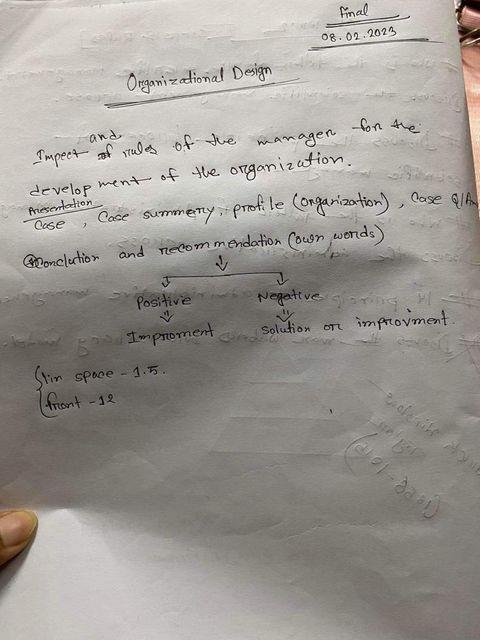 Final
08.02.2023
Organizational Design
and
Impect of rules of the manager for the
development of the organization.
Presentation
Case, Case summery, profile (organization), Case Q/An
Conclution and recommendation (own words)
Positive Negative
Improment solution or improvment.
lin space - 1.5.
front - 12